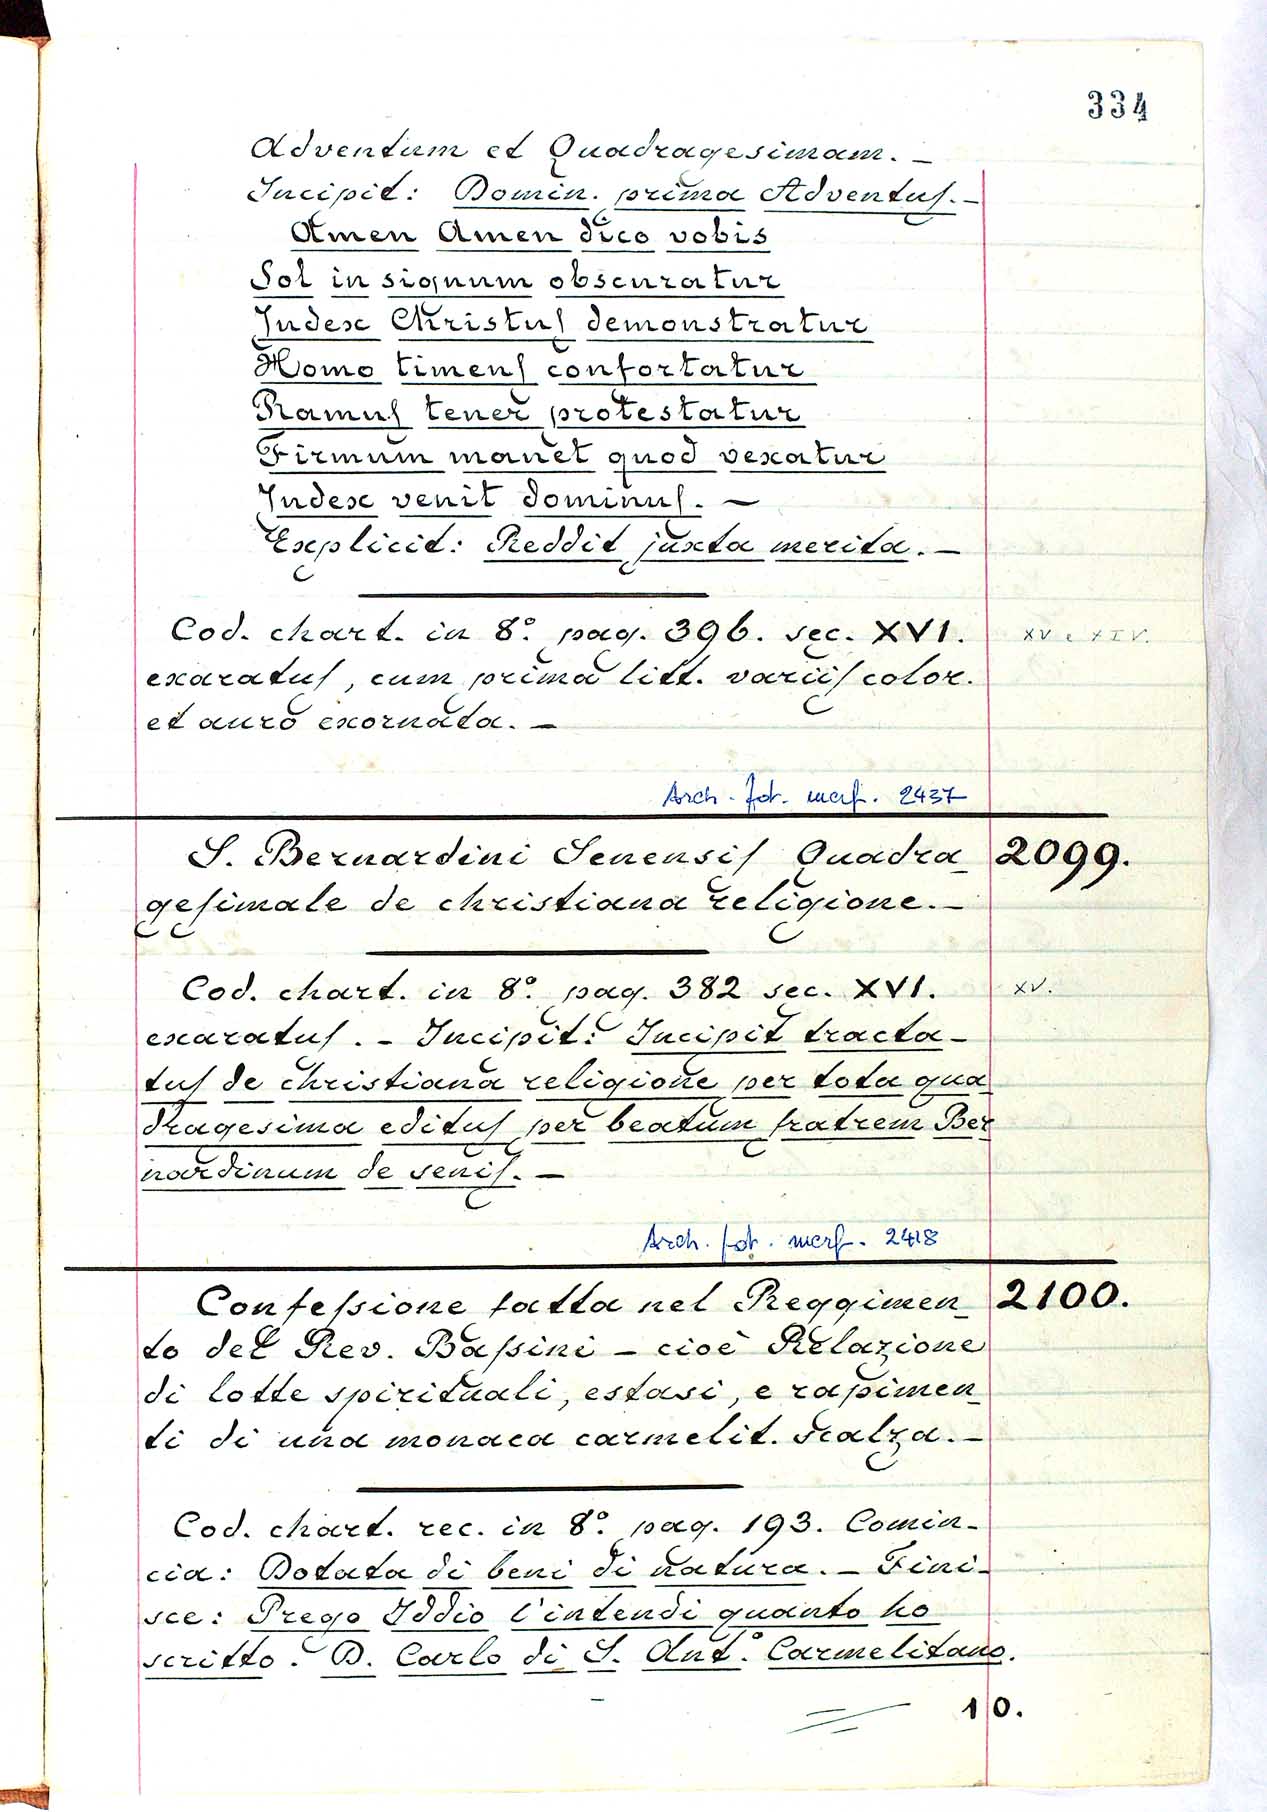 334
Adventum et Quadragesimam. –
Incipit: Domin. prima Adventus. –
Amen Amen dico vobis
Sol in signum obscuratur
Judex Christus demonstratur
Homo timens confortatur
Ramus tener protestatur
Firmum manet quod vexatur
Judex venit dominus. –
Explicit: Reddit juxta merita. –
Cod. chart. in 8º. pag. 396. sec. XVI.
XV e XIV.
exaratus, cum prima litt. variis color.
et auro exornata. –
Arch. fot. mcrf. 2437
S. Bernardini Senensis Quadra-
2099.
gesimale de christiana religione. –
Cod. chart. in 8º. pag. 382 sec. XVI.
XV.
exaratus. – Incipit: Incipit tracta-
tus de christiana religione per tota qua
dragesima editus per beatum fratrem Ber
nardinum de senis. –
Arch. fot. mcrf. 2418
Confessione fatta nel Reggimen-
2100.
to del Rev. Bassini – cioè Relazione
di lotte spirituali, estasi, e rapimen-
ti di una monaca carmelit. scalza. –
Cod. chart. rec. in 8º. pag. 193. Comin-
cia: Dotata di beni di natura. – Fini-
sce: Prego Iddio l'intendi quanto ho
scritto. D. Carlo di S. Antº. Carmelitano.
10.